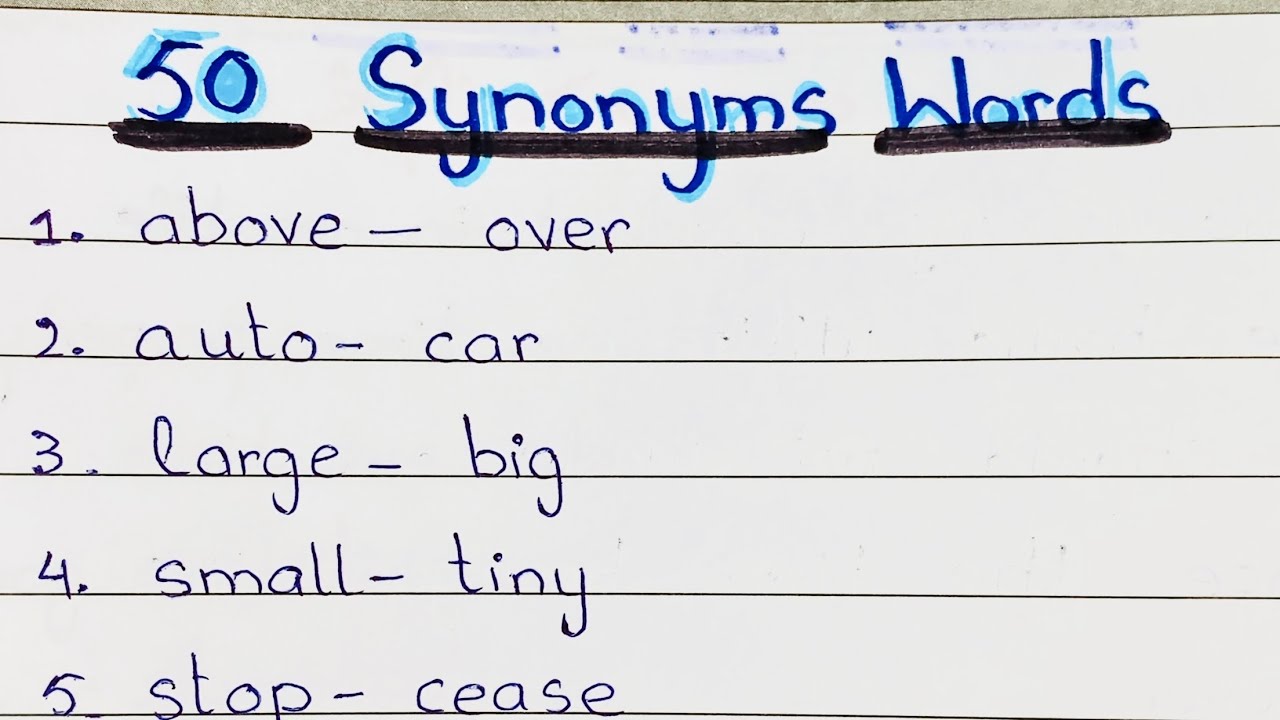 50 Synonyms Words
1. above - over
2. auto - car
3. large - big
4. small - tiny
5 stop - cease